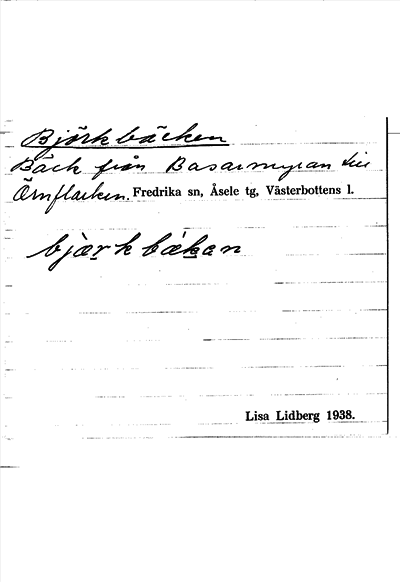 Björkbäcken
Bäck från Basarmyran till
Örnflarken. Fredrika sn, Åsele tg, Västerbottens l.
bjæ̀r̠kbák̠en
Lisa Lidberg 1938.